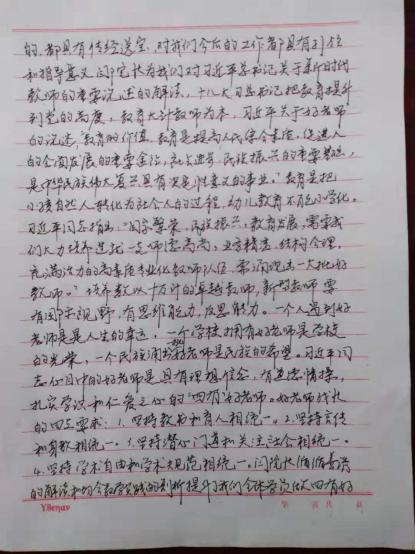 的,都具有传经送宝,对我们今后的工作者都具有引领
和指导意义。闫院长为我们对习近平总书记关于新时代
教师的重要论述的解读,十八大习总书记把教育提升
到党的高度,教育大计教师为本,习近平关于好老师
的论述,教育的价值,教育是提高人民综合素质,促进人
的全面发展的重要途径,是民族振兴的重要基石,
是中华民族伟大复兴具有决定性意义的事业。"教育是把
小孩自然人转化为社会人的过程,幼儿教育不能小学化。
习近平同志指出:"国家繁荣、民族振兴、教育发展,需要我
们大力培养造就一支师德高尚、业务精湛、结构合理、
充满活力的高素质专业化教师队伍,需涌现出一大批好
教师。"培养数以十万计的卓越教师,新型教师要
有国际视野,有思维能力,反思能力。一个人遇到好
老师是是人生的幸运,一个学校拥有好老师是学校
的光荣,一个民族涌现好老师是民族的希望。习近平同
志心目中的好老师是具有理想信念,有道德情操,
扎实学识和仁爱之心的"四有"好老师。好老师成长
的四点要求:1.坚持教书和育人相统一。2.坚持言传
和身教相统一。3.坚持潜心问道和关注社会相统一。
4.坚持学术自由和学术规范相统一。闫院长循循善诱
的解读和切合教学实践的剖析提升了我们全体学员做四有好
YBenav
第 页 共 页